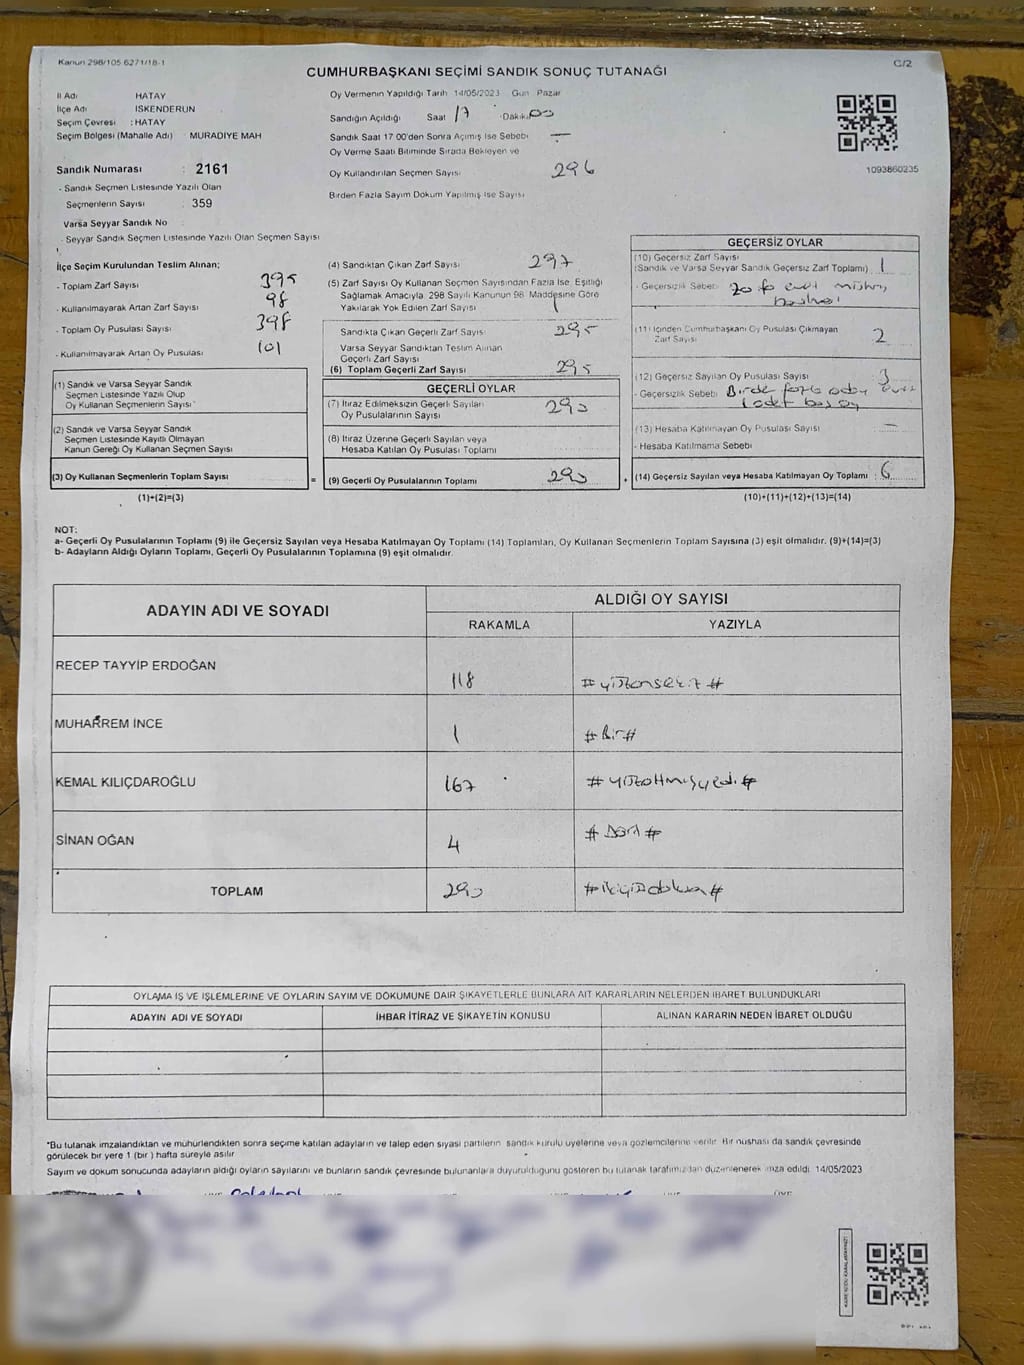 Kanun 298/105 6271/18-1
C/2
CUMHURBAŞKANI SEÇİMİ SANDIK SONUÇ TUTANAĞI
İl Adı HATAY
İlçe Adı İSKENDERUN
Seçim Çevresi : HATAY
Seçim Bölgesi (Mahalle Adı) : MURADİYE MAH
Sandık Numarası : 2161
- Sandık Seçmen Listesinde Yazılı Olan
Seçmenlerin Sayısı : 359
Varsa Seyyar Sandık No
- Seyyar Sandık Seçmen Listesinde Yazılı Olan Seçmen Sayısı
Oy Vermenin Yapıldığı Tarih 14/05/2023 Gün Pazar
Sandığın Açıldığı Saat 17 Dakika 00
Sandık Saat 17 00'den Sonra Açımış İse Sebebi —
Oy Verme Saati Bitiminde Sırada Bekleyen ve
Oy Kullandırılan Seçmen Sayısı 296
Birden Fazla Sayım Döküm Yapılmış İse Sayısı
1093860235
İlçe Seçim Kurulundan Teslim Alınan;
- Toplam Zarf Sayısı 395
- Kullanılmayarak Artan Zarf Sayısı 98
- Toplam Oy Pusulası Sayısı 398
- Kullanılmayarak Artan Oy Pusulası 101
(1) Sandık ve Varsa Seyyar Sandık
Seçmen Listesinde Yazılı Olup
Oy Kullanan Seçmenlerin Sayısı
(2) Sandık ve Varsa Seyyar Sandık
Seçmen Listesinde Kayıtlı Olmayan
Kanun Gereği Oy Kullanan Seçmen Sayısı
(3) Oy Kullanan Seçmenlerin Toplam Sayısı =
(1)+(2)=(3)
(4) Sandıktan Çıkan Zarf Sayısı 297
(5) Zarf Sayısı Oy Kullanan Seçmen Sayısından Fazla İse, Eşitliği
Sağlamak Amacıyla 298 Sayılı Kanunun 98. Maddesine Göre
Yakılarak Yok Edilen Zarf Sayısı 1
Sandıkta Çıkan Geçerli Zarf Sayısı 295
Varsa Seyyar Sandıktan Teslim Alınan
Geçerli Zarf Sayısı
(6) Toplam Geçerli Zarf Sayısı 295
GEÇERLİ OYLAR
(7) İtiraz Edilmeksizin Geçerli Sayılan
Oy Pusulalarının Sayısı 290
(8) İtiraz Üzerine Geçerli Sayılan veya
Hesaba Katılan Oy Pusulası Toplamı
(9) Geçerli Oy Pusulalarının Toplamı 290
GEÇERSİZ OYLAR
(10) Geçersiz Zarf Sayısı
(Sandık ve Varsa Seyyar Sandık Geçersiz Zarf Toplamı) 1
- Geçersizlik Sebebi:
(11) İçinden Cumhurbaşkanı Oy Pusulası Çıkmayan
Zarf Sayısı 2
(12) Geçersiz Sayılan Oy Pusulası Sayısı 3
- Geçersizlik Sebebi: Birde fazla aday
1 adet boş oy
(13) Hesaba Katılmayan Oy Pusulası Sayısı —
- Hesaba Katılmama Sebebi
(14) Geçersiz Sayılan veya Hesaba Katılmayan Oy Toplamı : 6
(10)+(11)+(12)+(13)=(14)
NOT:
a- Geçerli Oy Pusulalarının Toplamı (9) ile Geçersiz Sayılan veya Hesaba Katılmayan Oy Toplamı (14) Toplamları, Oy Kullanan Seçmenlerin Toplam Sayısına (3) eşit olmalıdır. (9)+(14)=(3)
b- Adayların Aldığı Oyların Toplamı, Geçerli Oy Pusulalarının Toplamına (9) eşit olmalıdır.
ADAYIN ADI VE SOYADI
ALDIĞI OY SAYISI
RAKAMLA YAZIYLA
RECEP TAYYİP ERDOĞAN 118 #yüzonsekiz#
MUHARREM İNCE 1 #Bir#
KEMAL KILIÇDAROĞLU 167 #yüzatmışyedi#
SİNAN OĞAN 4 #Dört#
TOPLAM 290 #ikiyüzdoksan#
OYLAMA İŞ VE İŞLEMLERİNE VE OYLARIN SAYIM VE DÖKÜMÜNE DAİR ŞİKAYETLERLE BUNLARA AİT KARARLARIN NELERDEN İBARET BULUNDUKLARI
ADAYIN ADI VE SOYADI İHBAR İTİRAZ VE ŞİKAYETİN KONUSU ALINAN KARARIN NEDEN İBARET OLDUĞU
*Bu tutanak imzalandıktan ve mühürlendikten sonra seçime katılan adayların ve talep eden siyasi partilerin sandık kurulu üyelerine veya gözlemcilerine verilir. Bir nüshası da sandık çevresinde
görülecek bir yere 1 (bir) hafta süreyle asılır
Sayım ve döküm sonucunda adayların aldığı oyların sayılarını ve bunların sandık çevresinde bulunanlara duyurulduğunu gösteren bu tutanak tarafımızdan düzenlenerek imza edildi 14/05/2023